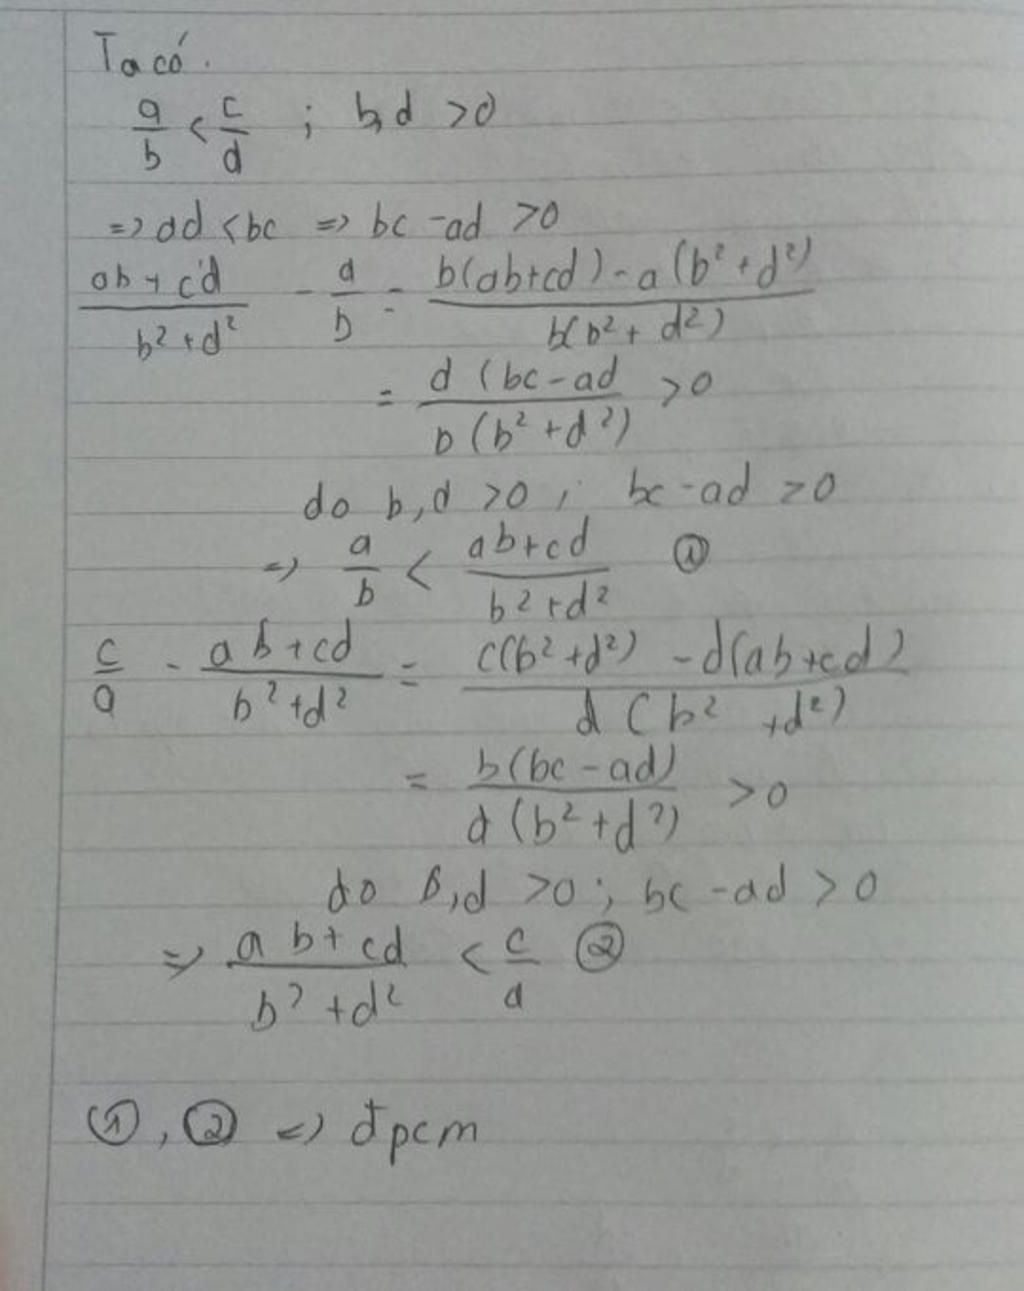 Ta có.
a/b < c/d ; b,d >0
=> ad <bc => bc -ad >0
(ab + cd)/(b² + d²) - a/b = (b(ab+cd) - a(b² + d²))/(b(b² + d²))
= (d (bc-ad)/(b (b² + d²)) >0
do b,d >0 ; bc -ad >0
=> a/b < (ab+cd)/(b²+d²) ①
c/d - (ab+cd)/(b²+d²) = (c(b²+d²) - d(ab+cd))/(d (b² +d²))
= (b(bc-ad))/(d (b²+d²)) >0
do b,d >0 ; bc -ad > 0
=> (ab+cd)/(b²+d²) < c/d ②
①, ② => đpcm